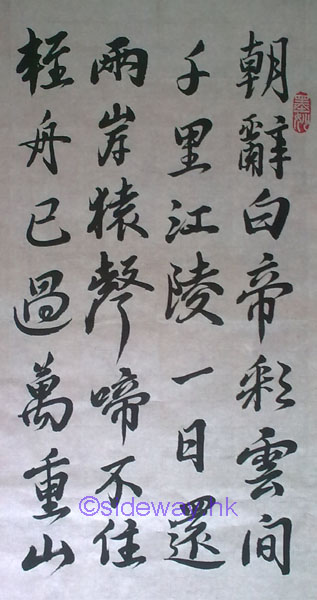 朝辭白帝彩雲間
千里江陵一日還
兩岸猿聲啼不住
輕舟已過萬重山
©sideway.hk